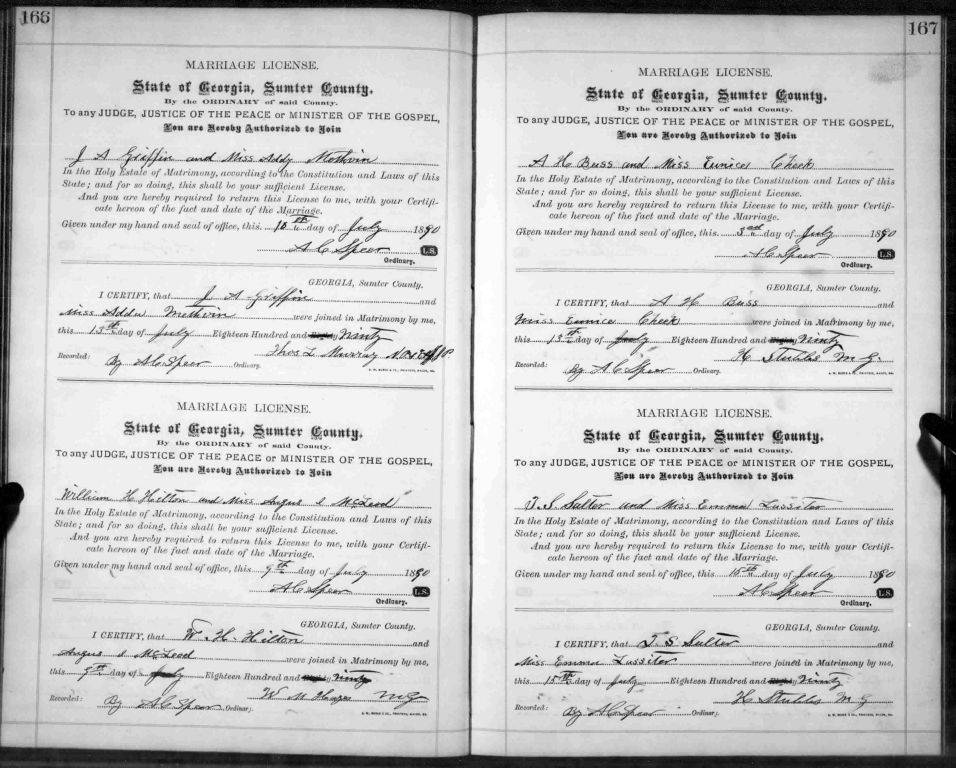 166
MARRIAGE LICENSE.
State of Georgia, Sumter County.
By the ORDINARY of said County.
To any JUDGE, JUSTICE OF THE PEACE or MINISTER OF THE GOSPEL,
You are Hereby Authorized to Join
J A Griffin and Miss Addy Methvin
In the Holy Estate of Matrimony, according to the Constitution and Laws of this
State; and for so doing, this shall be your sufficient License.
And you are hereby required to return this License to me, with your Certifi-
cate hereon of the fact and date of the Marriage.
Given under my hand and seal of office, this 10th day of July 1890
A C Speer L.S.
Ordinary.
GEORGIA, Sumter County.
I CERTIFY, that J A Griffin and
Miss Addie Methvin were joined in Matrimony by me,
this 13th day of July Eighteen Hundred and Eighty Ninty
Thos L Murray
Recorded: By A C Speer Ordinary.
MARRIAGE LICENSE.
State of Georgia, Sumter County.
By the ORDINARY of said County.
To any JUDGE, JUSTICE OF THE PEACE or MINISTER OF THE GOSPEL,
You are Hereby Authorized to Join
William H Hilton and Miss Angus L McLeod
In the Holy Estate of Matrimony, according to the Constitution and Laws of this
State; and for so doing, this shall be your sufficient License.
And you are hereby required to return this License to me, with your Certifi-
cate hereon of the fact and date of the Marriage.
Given under my hand and seal of office, this 9th day of July 1890
A C Speer L.S.
Ordinary.
GEORGIA, Sumter County.
I CERTIFY, that W. H. Hilton and
Angus L McLeod were joined in Matrimony by me,
this 9th day of July Eighteen Hundred and Eighty Ninty
W M MG
Recorded: By A C Speer Ordinary.
167
MARRIAGE LICENSE.
State of Georgia, Sumter County.
By the ORDINARY of said County.
To any JUDGE, JUSTICE OF THE PEACE or MINISTER OF THE GOSPEL,
You are Hereby Authorized to Join
A H Buss and Miss Eunice Cheek
In the Holy Estate of Matrimony, according to the Constitution and Laws of this
State; and for so doing, this shall be your sufficient License.
And you are hereby required to return this License to me, with your Certifi-
cate hereon of the fact and date of the Marriage.
Given under my hand and seal of office, this 3rd day of July 1890
A C Speer L.S.
Ordinary.
GEORGIA, Sumter County.
I CERTIFY, that A H Buss and
Miss Eunice Cheek were joined in Matrimony by me,
this 13th day of July Eighteen Hundred and Eighty Ninty
H Stubbs M G.
Recorded: By A C Speer Ordinary.
MARRIAGE LICENSE.
State of Georgia, Sumter County.
By the ORDINARY of said County.
To any JUDGE, JUSTICE OF THE PEACE or MINISTER OF THE GOSPEL,
You are Hereby Authorized to Join
T. S Salter and Miss Emma Lassiter
In the Holy Estate of Matrimony, according to the Constitution and Laws of this
State; and for so doing, this shall be your sufficient License.
And you are hereby required to return this License to me, with your Certifi-
cate hereon of the fact and date of the Marriage.
Given under my hand and seal of office, this 15th day of July 1890
A C Speer L.S.
Ordinary.
GEORGIA, Sumter County.
I CERTIFY, that T. S Salter and
Miss Emma Lassiter were joined in Matrimony by me,
this 15th day of July Eighteen Hundred and Eighty Ninty
H Stubbs M G
Recorded: By A C Speer Ordinary.